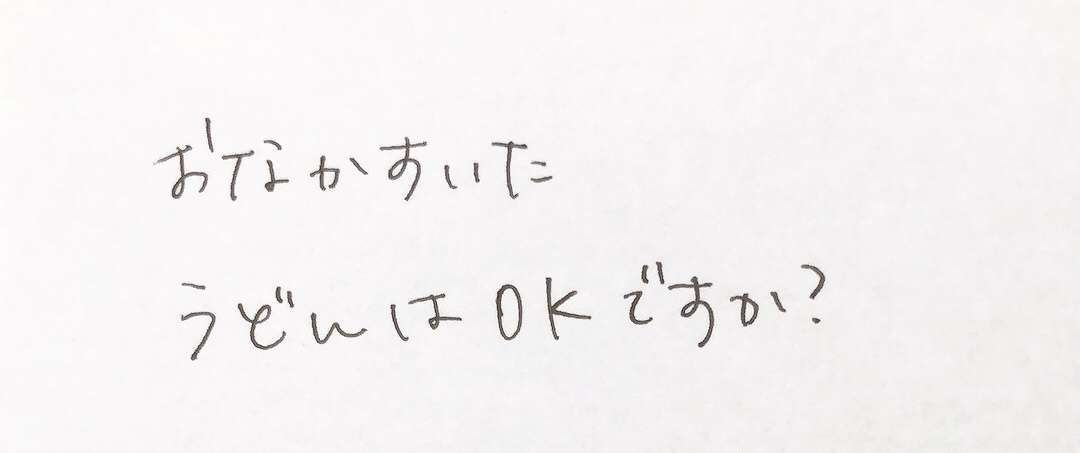 おなかすいた
うどんはOKですか?